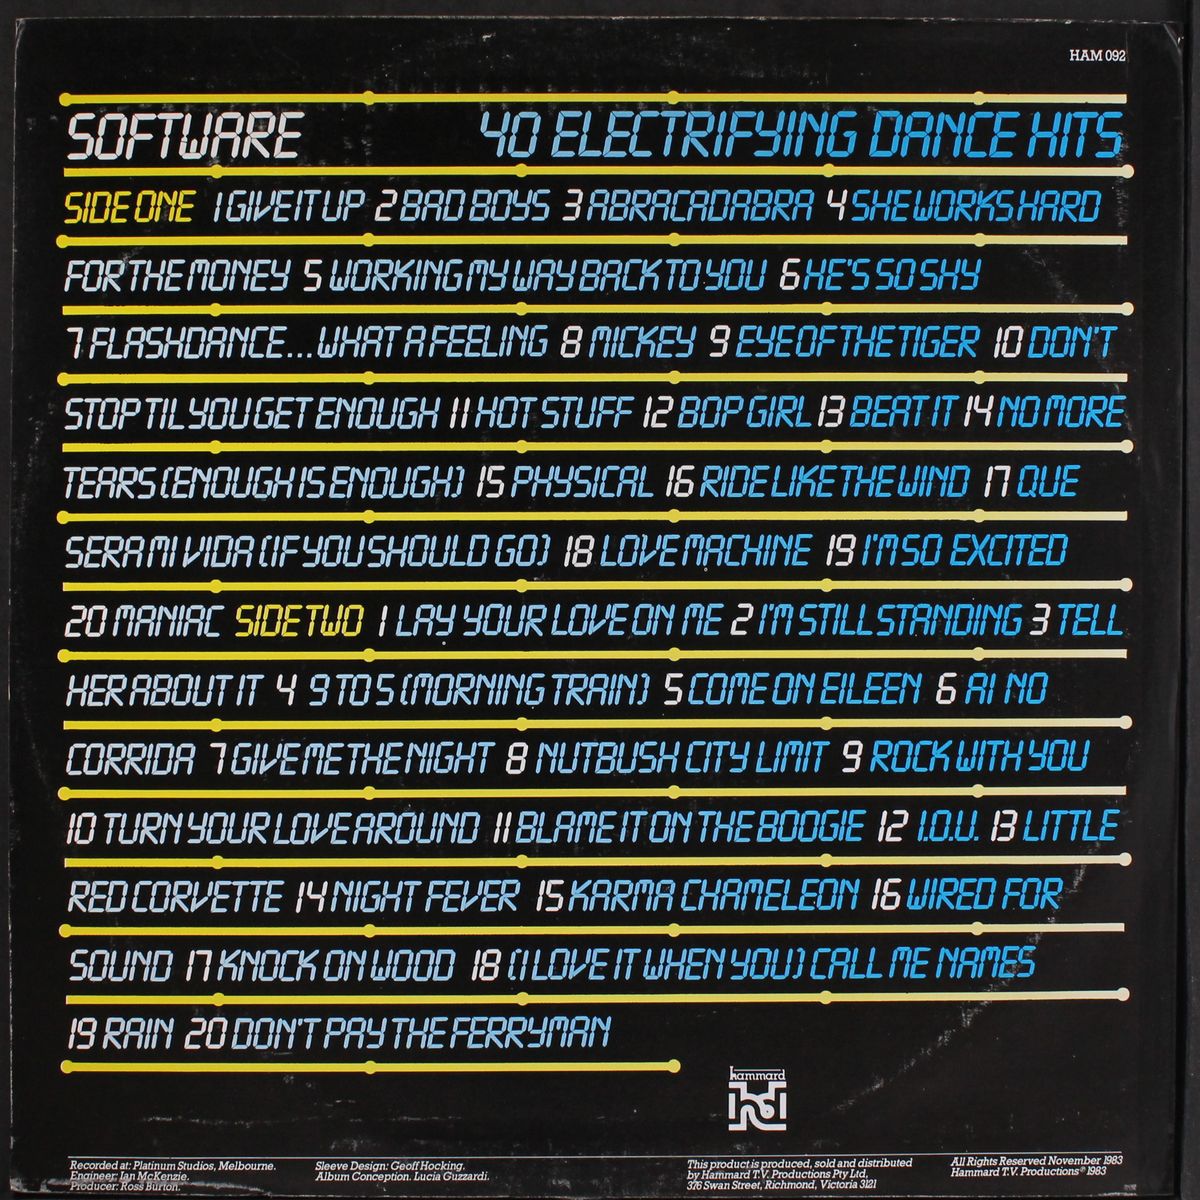 HAM 092
SOFTWARE 40 ELECTRIFYING DANCE HITS
SIDE ONE 1 GIVE IT UP 2 BAD BOYS 3 ABRACADABRA 4 SHE WORKS HARD
FOR THE MONEY 5 WORKING MY WAY BACK TO YOU 6 HE'S SO SHY
7 FLASHDANCE...WHAT A FEELING 8 MICKEY 9 EYE OF THE TIGER 10 DON'T
STOP TIL YOU GET ENOUGH 11 HOT STUFF 12 BOP GIRL 13 BEAT IT 14 NO MORE
TEARS (ENOUGH IS ENOUGH) 15 PHYSICAL 16 RIDE LIKE THE WIND 17 QUE
SERA MI VIDA (IF YOU SHOULD GO) 18 LOVE MACHINE 19 I'M SO EXCITED
20 MANIAC SIDE TWO 1 LAY YOUR LOVE ON ME 2 I'M STILL STANDING 3 TELL
HER ABOUT IT 4 9 TO 5 (MORNING TRAIN) 5 COME ON EILEEN 6 AI NO
CORRIDA 7 GIVE ME THE NIGHT 8 NUTBUSH CITY LIMIT 9 ROCK WITH YOU
10 TURN YOUR LOVE AROUND 11 BLAME IT ON THE BOOGIE 12 I.O.U. 13 LITTLE
RED CORVETTE 14 NIGHT FEVER 15 KARMA CHAMELEON 16 WIRED FOR
SOUND 17 KNOCK ON WOOD 18 (I LOVE IT WHEN YOU) CALL ME NAMES
19 RAIN 20 DON'T PAY THE FERRYMAN
hammard
Recorded at: Platinum Studios, Melbourne.
Engineer: Ian McKenzie.
Producer: Ross Burton.
Sleeve Design: Geoff Hocking.
Album Conception. Lucia Guzzardi.
This product is produced, sold and distributed
by Hammard T.V. Productions Pty Ltd.
376 Swan Street, Richmond, Victoria 3121
All Rights Reserved November 1983
Hammard T.V. Productions ℗ 1983